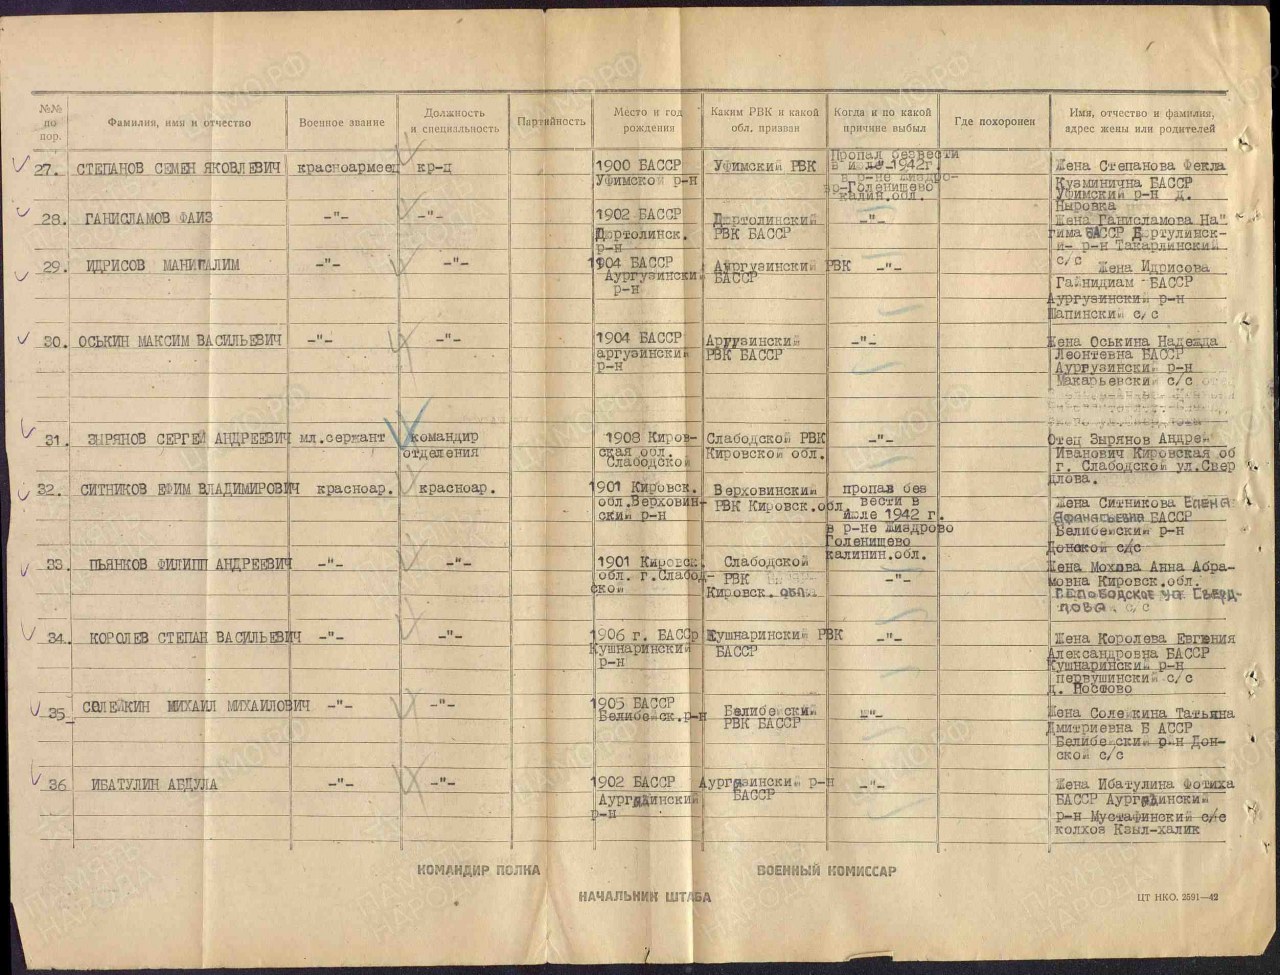 №№ по пор.
Фамилия, имя и отчество
Военное звание
Должность и специальность
Партийность
Место и год рождения
Каким РВК и какой обл. призван
Когда и по какой причине выбыл
Где похоронен
Имя, отчество и фамилия, адрес жены или родителей
27. СТЕПАНОВ СЕМЕН ЯКОВЛЕВИЧ красноармеец кр-ц
1900 БАССР
Уфимской р-н
Уфимский РВК
Пропал безвести
в июле 1942г.
в р-не Жиздро-
во-Голенищево
калин.обл.
Жена Степанова Фекла
Кузминична БАССР
Уфимский р-н д.
Ныровка
28. ГАНИСЛАМОВ ФАИЗ -"- -"-
1902 БАССР
Дюртолинск.
р-н
Дюртолинский
РВК БАССР
-"-
Жена Ганисламова На
гима БАССР Дюртулинск-
и- р-н Такарлинский
с/с
29. ИДРИСОВ МАНИГАЛИМ -"- -"-
1904 БАССР
Аургузинский
р-н
Аургузинский РВК
БАССР
-"-
Жена Идрисова
Гайнидиам БАССР
Аургузинский р-н
Шапинский с/с
30. ОСЬКИН МАКСИМ ВАСИЛЬЕВИЧ -"- -"-
1904 БАССР
аргузинский
р-н
Аргузинский
РВК БАССР
-"-
Жена Оськина Надежда
Леонтевна БАССР
Аургузинский р-н
Макарьевский с/с
31. ЗЫРЯНОВ СЕРГЕЙ АНДРЕЕВИЧ мл.сержант командир
отделения
1908 Киров-
ская обл.
Слабодской
Слабодской РВК
Кировской обл.
-"-
Отец Зырянов Андрей
Иванович Кировская об
г. Слабодской ул.Свер
длова.
32. СИТНИКОВ ЕФИМ ВЛАДИМИРОВИЧ красноар. красноар.
1901 Кировск.
обл.Верховин-
ский р-н
Верховинский
РВК Кировск.обл.
пропал без
вести в
Июле 1942 г.
в р-не Жиздрово
Голенищево
калинин.обл.
Жена Ситникова Елена
Афанасьевна БАССР
Белибейский р-н
Донской с/с
33. ПЬЯНКОВ ФИЛИПП АНДРЕЕВИЧ -"- -"-
1901 Кировск.
обл. г.Слабод-
ской
Слабодской
РВК
Кировск. обл.
-"-
Жена Мохова Анна Абра-
мовна Кировск.обл.
Г.Слободской ул Сверд-
лова с/с
34. КОРОЛЕВ СТЕПАН ВАСИЛЬЕВИЧ -"- -"-
1906 г. БАССР
Кушнаринский
р-н
Кушнаринский РВК
БАССР
-"-
Жена Королева Евгения
Александровна БАССР
Кушнаринский р-н
первушинский с/с
д. Посфово
35 СОЛЕЙКИН МИХАИЛ МИХАИЛОВИЧ -"- -"-
1905 БАССР
Белибейск.р-н
Белибейский
РВК БАССР
-"-
Жена Солейкина Татьяна
Дмитриевна Б АССР
Белибейский р-н Дон-
ской с/с
36 ИБАТУЛИН АБДУЛА -"- -"-
1902 БАССР
р-н
Аургузинский р-н
БАССР
-"-
Жена Ибатулина Фотиха
БАССР
р-н Мустафинский с/с
колхоз Кзыл-халик
КОМАНДИР ПОЛКА
ВОЕННЫЙ КОМИССАР
НАЧАЛЬНИК ШТАБА
ЦТ НКО. 2591—42